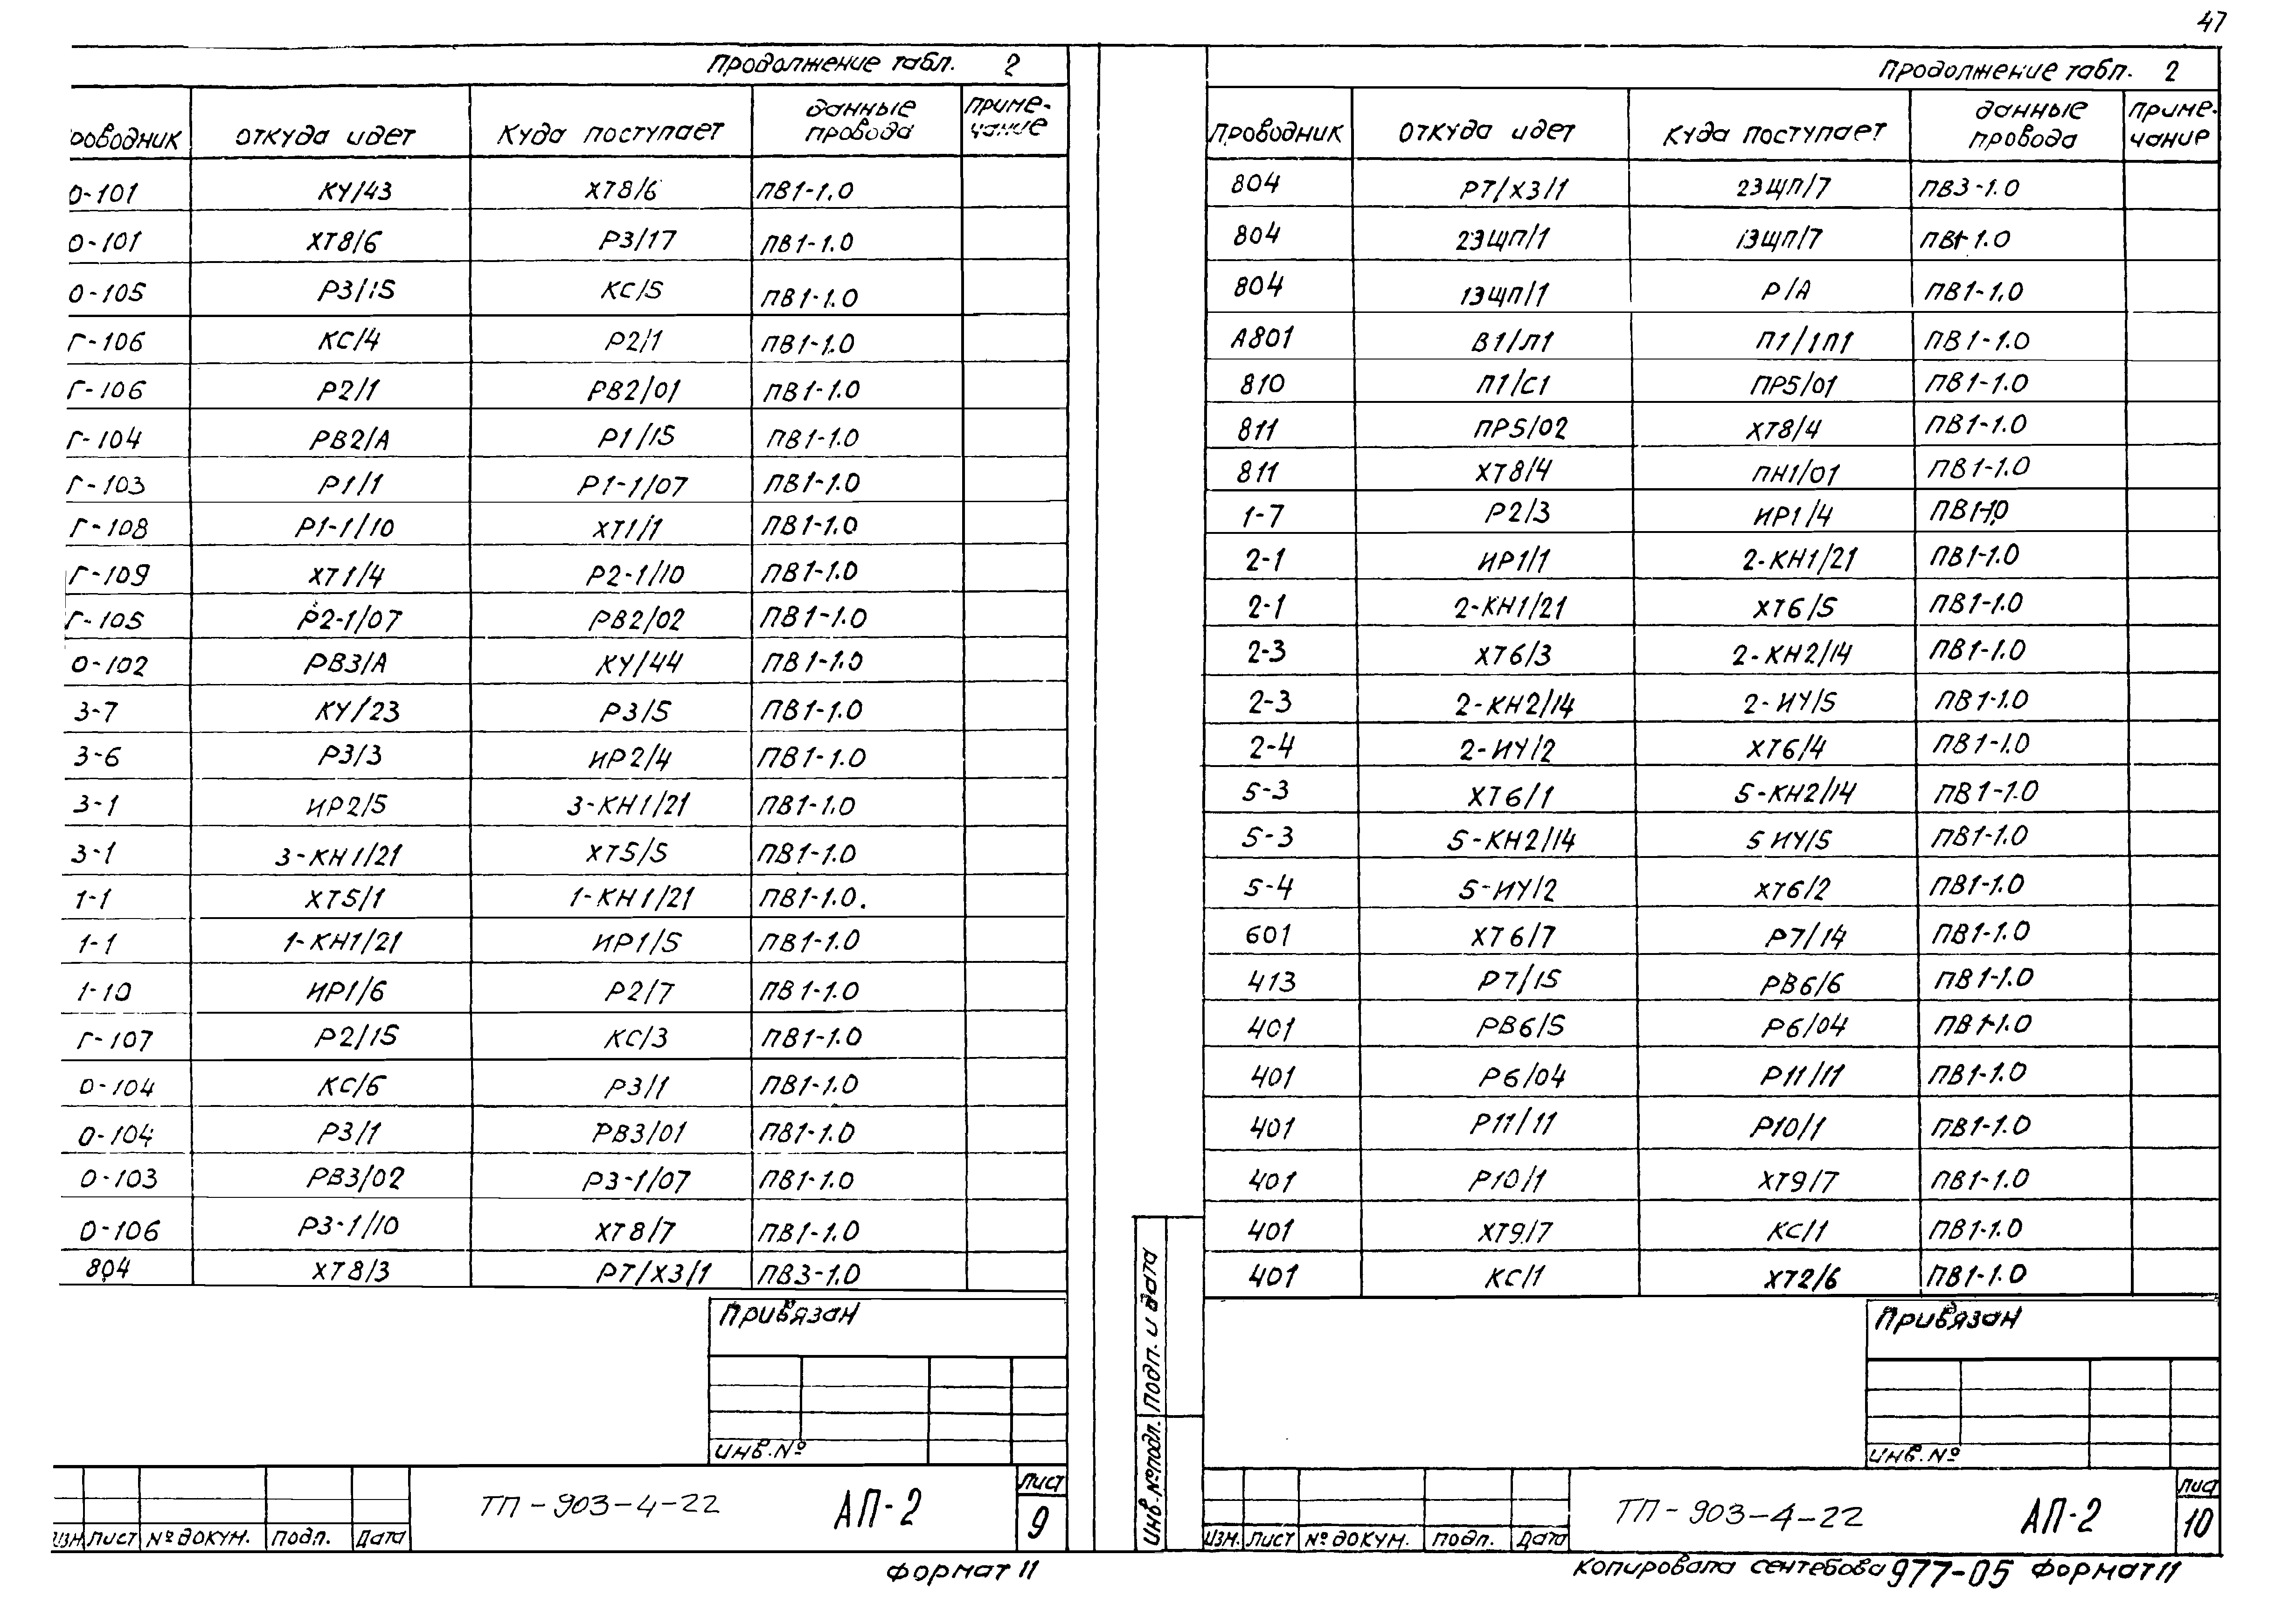 47
Продолжение табл. 2
роводник откуда идет Куда поступает данные провода приме-чание
0-101 КУ/43 ХТ8/6 ПВ1-1.0
0-101 ХТ8/6 Р3/17 ПВ1-1.0
0-105 Р3/15 КС/5 ПВ1-1.0
Г-106 КС/4 Р2/1 ПВ1-1.0
Г-106 Р2/1 РВ2/01 ПВ1-1.0
Г-104 РВ2/А Р1/15 ПВ1-1.0
Г-103 Р1/1 Р1-1/07 ПВ1-1.0
Г-108 Р1-1/10 ХТ1/1 ПВ1-1.0
Г-109 ХТ1/4 Р2-1/10 ПВ1-1.0
Г-105 Р2-1/07 РВ2/02 ПВ1-1.0
0-102 РВ3/А КУ/44 ПВ1-1.0
3-7 КУ/23 Р3/5 ПВ1-1.0
3-6 Р3/3 ИР2/4 ПВ1-1.0
3-1 ИР2/5 3-КН1/21 ПВ1-1.0
3-1 3-КН1/21 ХТ5/5 ПВ1-1.0
1-1 ХТ5/1 1-КН1/21 ПВ1-1.0.
1-1 1-КН1/21 ИР1/5 ПВ1-1.0
1-10 ИР1/6 Р2/7 ПВ1-1.0
Г-107 Р2/15 КС/3 ПВ1-1.0
0-104 КС/6 Р3/1 ПВ1-1.0
0-104 Р3/1 РВ3/01 ПВ1-1.0
0-103 РВ3/02 Р3-1/07 ПВ1-1.0
0-106 Р3-1/10 ХТ8/7 ПВ1-1.0
804 ХТ8/3 РТ/Х3/1 ПВ3-1.0
Привязан
инв.№
Изм. лист № докум. подп. Дата
ТП-903-4-22 АП-2
лист
9
Формат 11
Продолжение табл. 2
Проводник откуда идет Куда поступает данные провода приме-чание
804 РТ/Х3/1 2ЭЩП/7 ПВ3-1.0
804 2ЭЩП/1 1ЭЩП/7 ПВ1-1.0
804 1ЭЩП/1 Р/А ПВ1-1.0
А801 В1/Л1 П1/1Л1 ПВ1-1.0
810 П1/С1 ПР5/01 ПВ1-1.0
811 ПР5/02 ХТ8/4 ПВ1-1.0
811 ХТ8/4 ПН1/01 ПВ1-1.0
1-7 Р2/3 ИР1/4 ПВ1-1.0
2-1 ИР1/1 2-КН1/21 ПВ1-1.0
2-1 2-КН1/21 ХТ6/5 ПВ1-1.0
2-3 ХТ6/3 2-КН2/14 ПВ1-1.0
2-3 2-КН2/14 2-ИУ/5 ПВ1-1.0
2-4 2-ИУ/2 ХТ6/4 ПВ1-1.0
5-3 ХТ6/1 5-КН2/14 ПВ1-1.0
5-3 5-КН2/14 5 ИУ/5 ПВ1-1.0
5-4 5-ИУ/2 ХТ6/2 ПВ1-1.0
601 ХТ6/7 Р7/14 ПВ1-1.0
413 Р7/15 РВ6/6 ПВ1-1.0
401 РВ6/5 Р6/04 ПВ1-1.0
401 Р6/04 Р11/11 ПВ1-1.0
401 Р11/11 Р10/1 ПВ1-1.0
401 Р10/1 ХТ9/7 ПВ1-1.0
401 ХТ9/7 КС/1 ПВ1-1.0
401 КС/1 ХТ2/6 ПВ1-1.0
Инв.№ подл. Подп. и дата
Привязан
инв.№
Изм. лист № докум. подп. Дата
ТП-903-4-22 АП-2
лист
10
Копировала сентебова 977-05 Формат 11